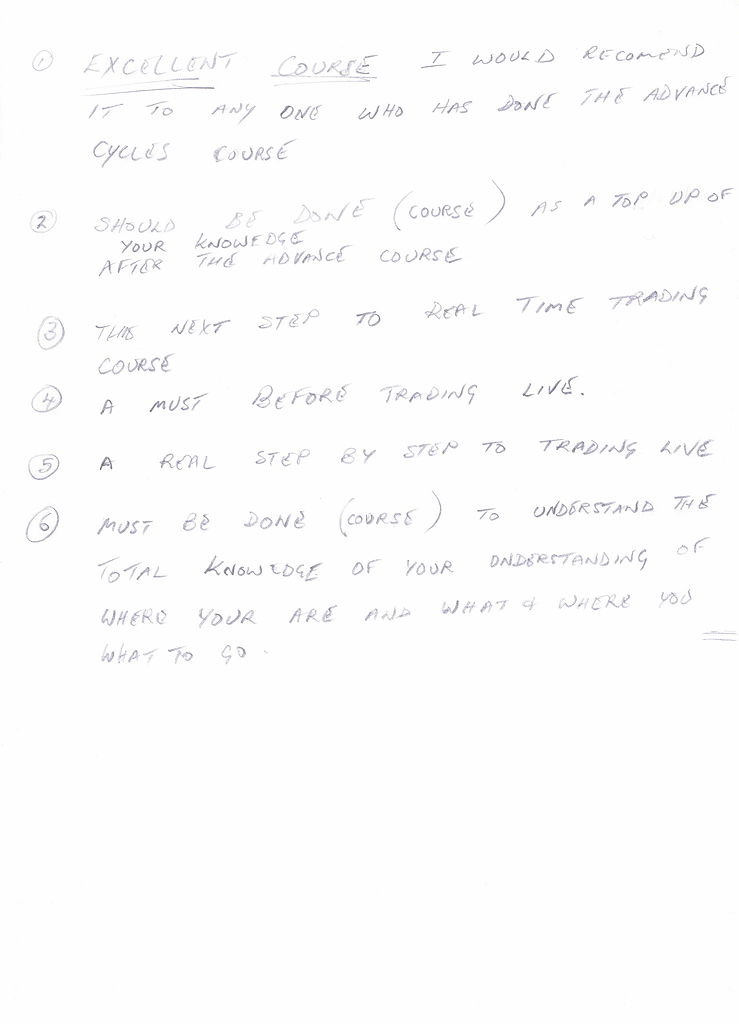 ① EXCELLENT COURSE I WOULD RECOMEND
IT TO ANY ONE WHO HAS DONE THE ADVANCE
CYCLES COURSE
② SHOULD BE DONE (COURSE) AS A TOP UP OF
YOUR KNOWEDGE
AFTER THE ADVANCE COURSE
③ THE NEXT STEP TO REAL TIME TRADING
COURSE
④ A MUST BEFORE TRADING LIVE.
⑤ A REAL STEP BY STEP TO TRADING LIVE
⑥ MUST BE DONE (COURSE) TO UNDERSTAND THE
TOTAL KNOWLEDGE OF YOUR UNDERSTANDING OF
WHERE YOUR ARE AND WHAT & WHERE YOU
WHAT TO GO.